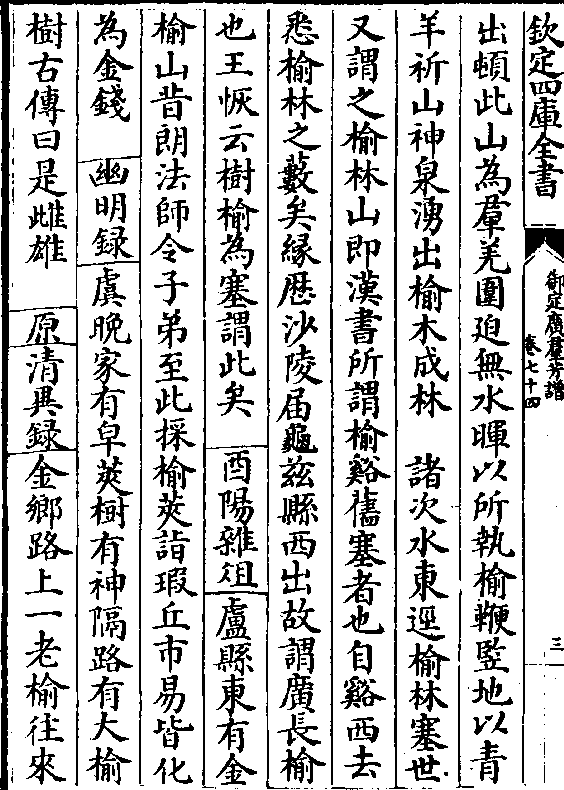 欽定四庫全書
御定廣羣芳譜
卷七十四
三
出頓此山為羣羌圍廹無水暉以所執榆鞭竪地以青
羊祈山神泉湧出榆木成林　諸次水東逕榆林塞世
又謂之榆林山即漢書所謂榆谿舊塞者也自谿西去
悉榆林之藪矣緣歴沙陵届龜兹縣西出故謂廣長榆
也王恢云樹榆為塞謂此矣　酉陽雜俎盧縣東有金
榆山昔朗法師令子弟至此採榆莢詣瑕丘市易皆化
為金錢　幽明録虞晚家有皁莢樹有神隔路有大榆
樹古傳曰是雌雄　原清異録金鄉路上一老榆往來